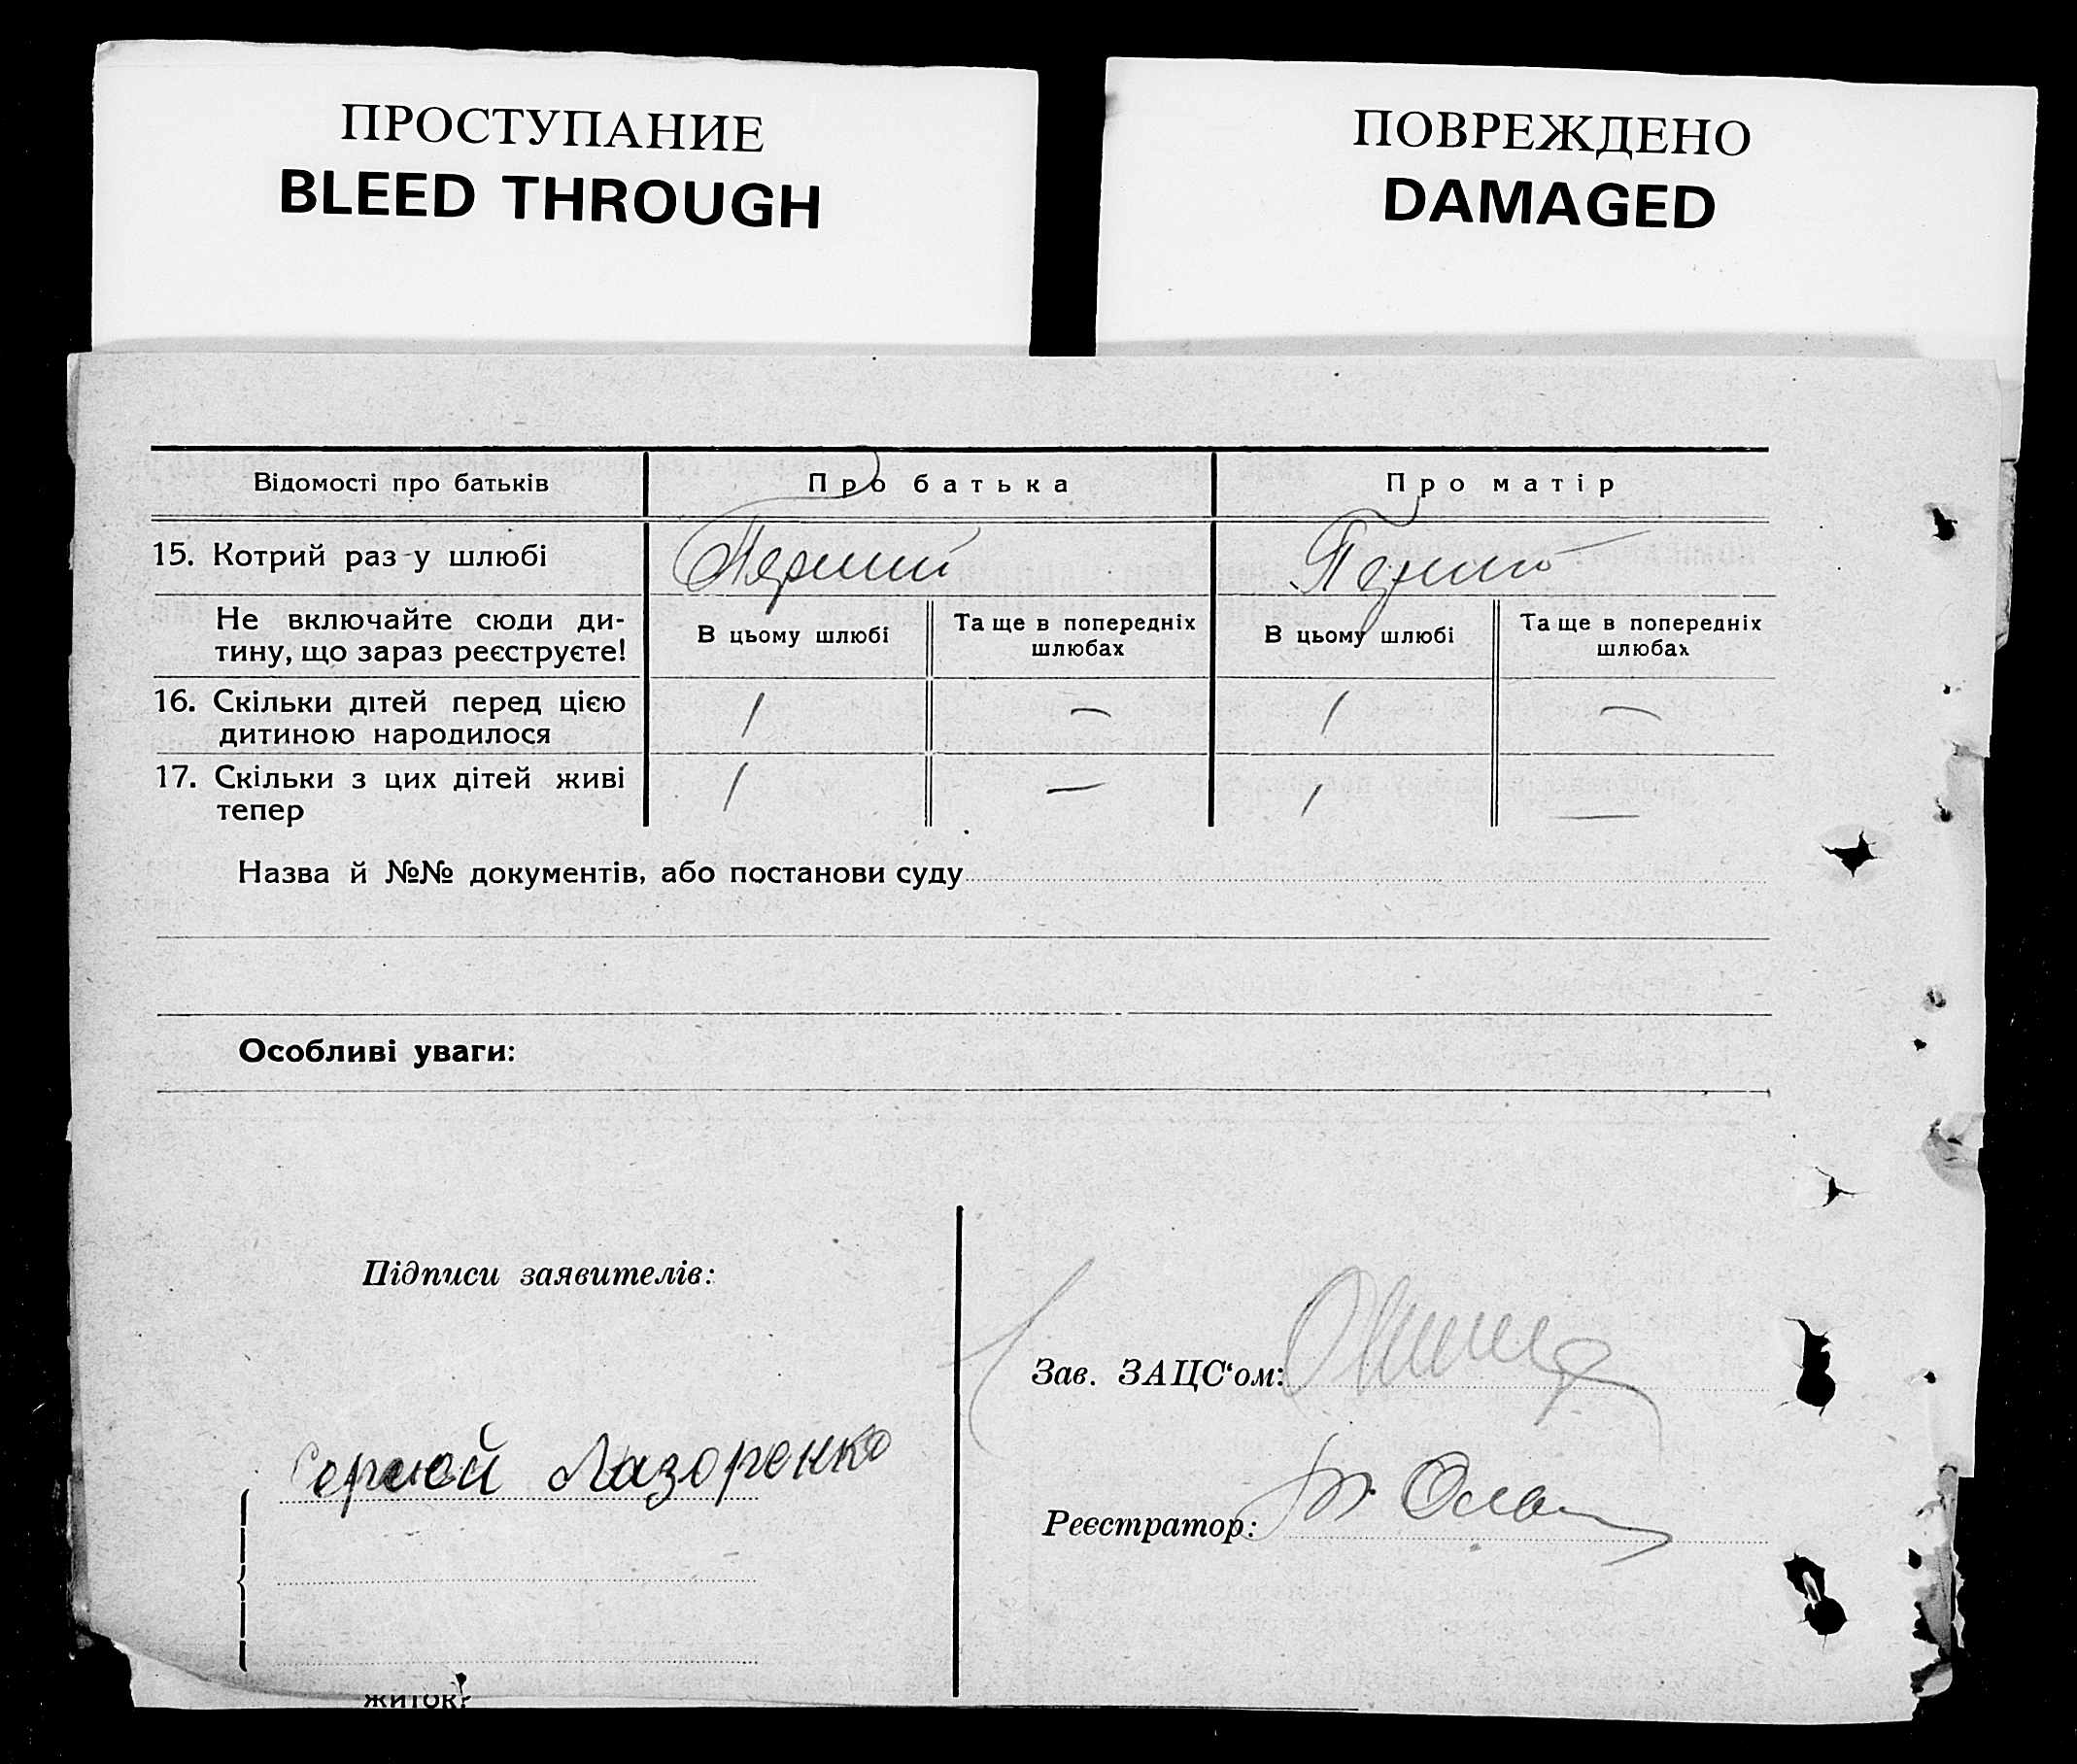 ПРОСТУПАНИЕ
BLEED THROUGH
ПОВРЕЖДЕНО
DAMAGED
Відомості про батьків Про батька Про матір
15. Котрий раз у шлюбі Перший Перший
Не включайте сюди ди-
тину, що зараз реєструєте!
В цьому шлюбі Та ще в попередніх
шлюбах
В цьому шлюбі Та ще в попередніх
шлюбах
16. Скільки дітей перед цією
дитиною народилося 1 — 1 —
17. Скільки з цих дітей живі
тепер 1 — 1 —
Назва й №№ документів, або постанови суду
Особливі уваги:
Підписи заявителів:
Лазоренко
Зав. ЗАЦС‘ом:
Реєстратор:
житок?